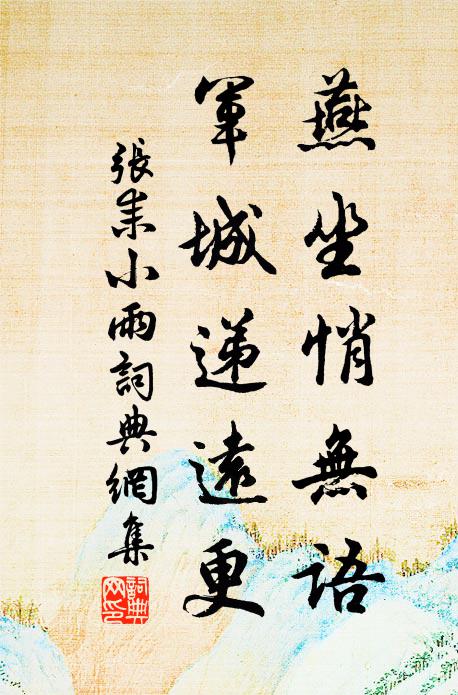 燕坐悄無語
軍城遞遠更
張耒小雨詞典網集
詞典
网印